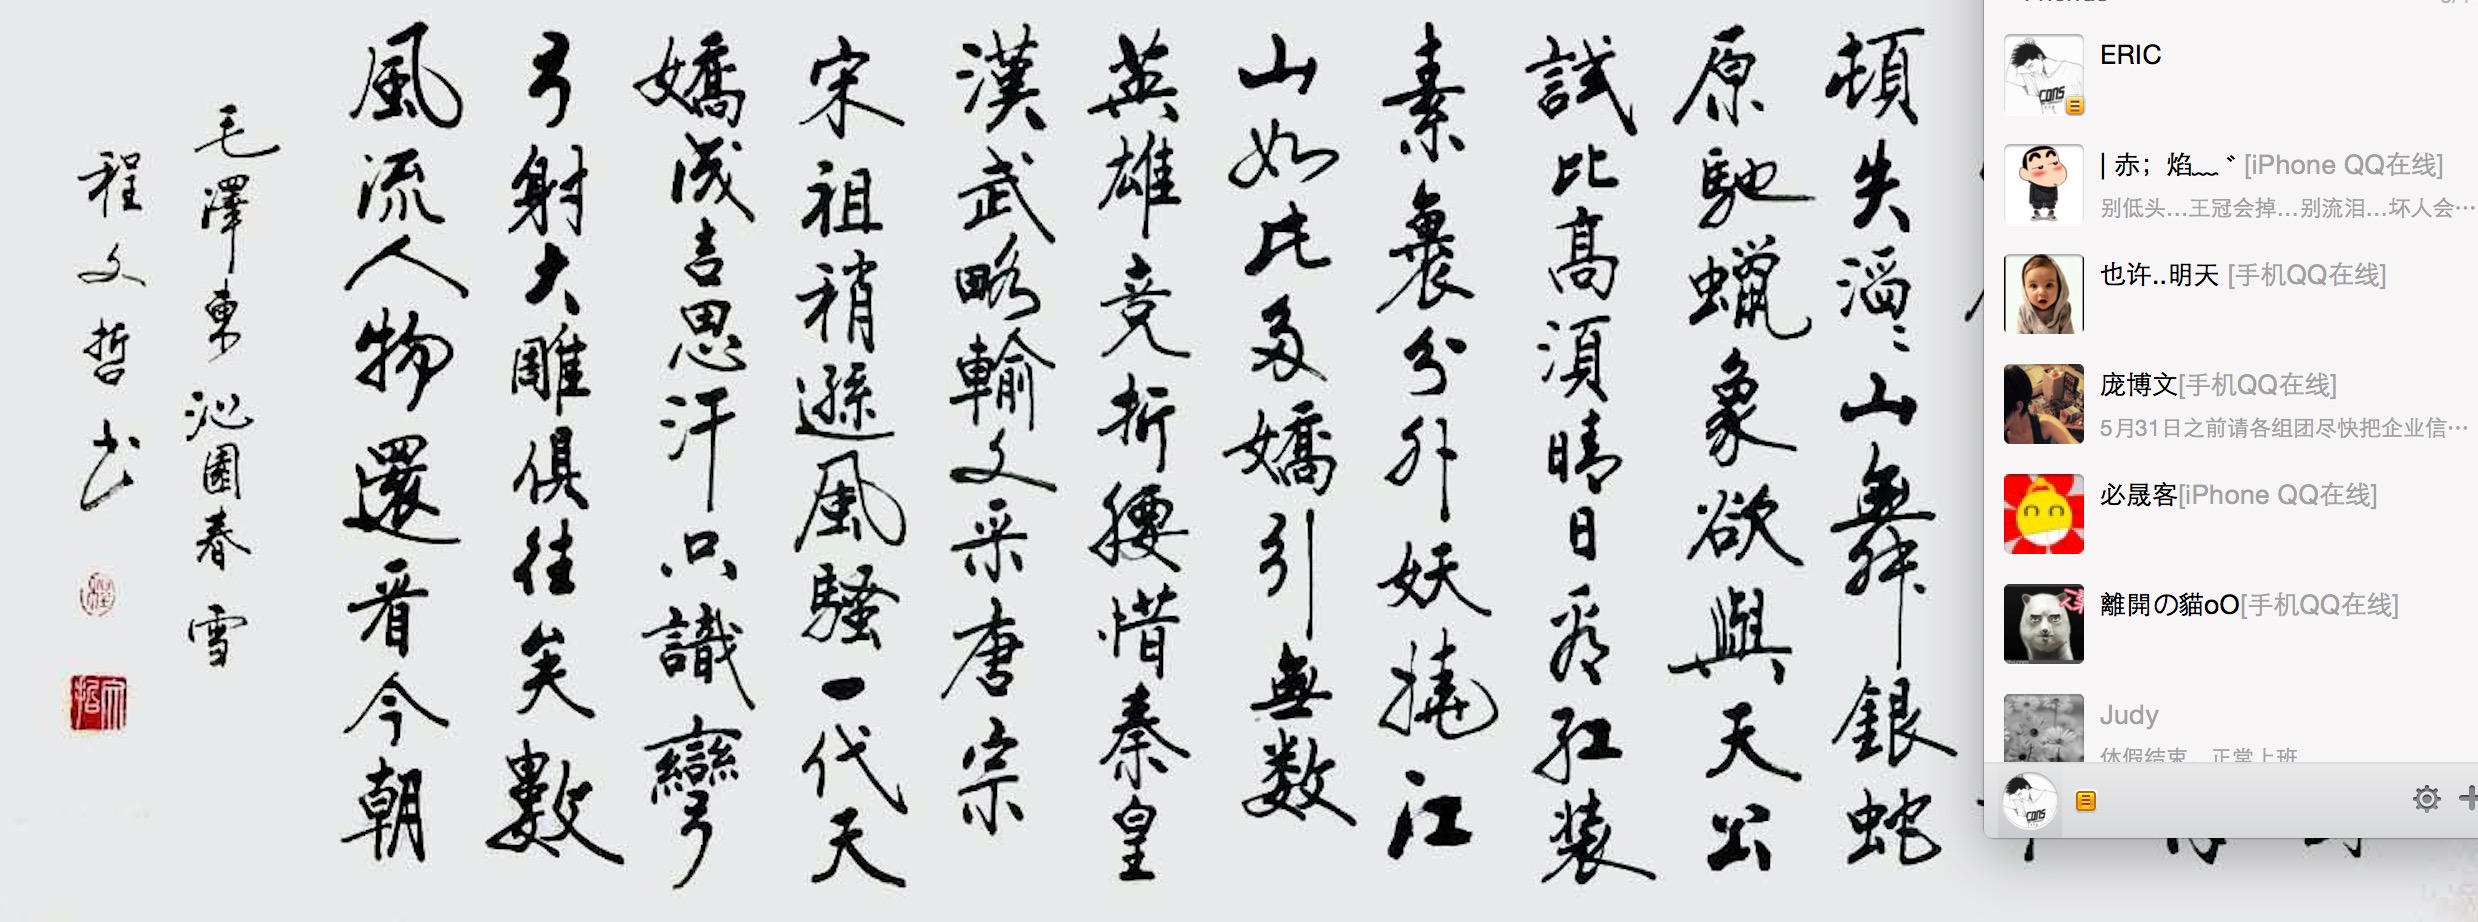 頓失滔〻山舞銀蛇
原馳蠟象欲與天公
試比高須晴日看紅裝
素裹分外妖撓江
山如此多嬌引無数
英雄竞折腰惜秦皇
漢武略輸文采唐宗
宋祖稍遜風騷一代天
嬌成吉思汗只識彎
弓射大雕俱往矣數
風流人物還看今朝
毛澤東沁園春雪
程文哲书
ERIC
| 赤；焰﹏ﾞ [iPhone QQ在线]
别低头...王冠会掉...别流泪...坏人会…
也许..明天 [手机QQ在线]
庞博文[手机QQ在线]
5月31日之前请各组团尽快把企业信…
必晟客[iPhone QQ在线]
離開の貓oO[手机QQ在线]
Judy
休假结束，正常上班